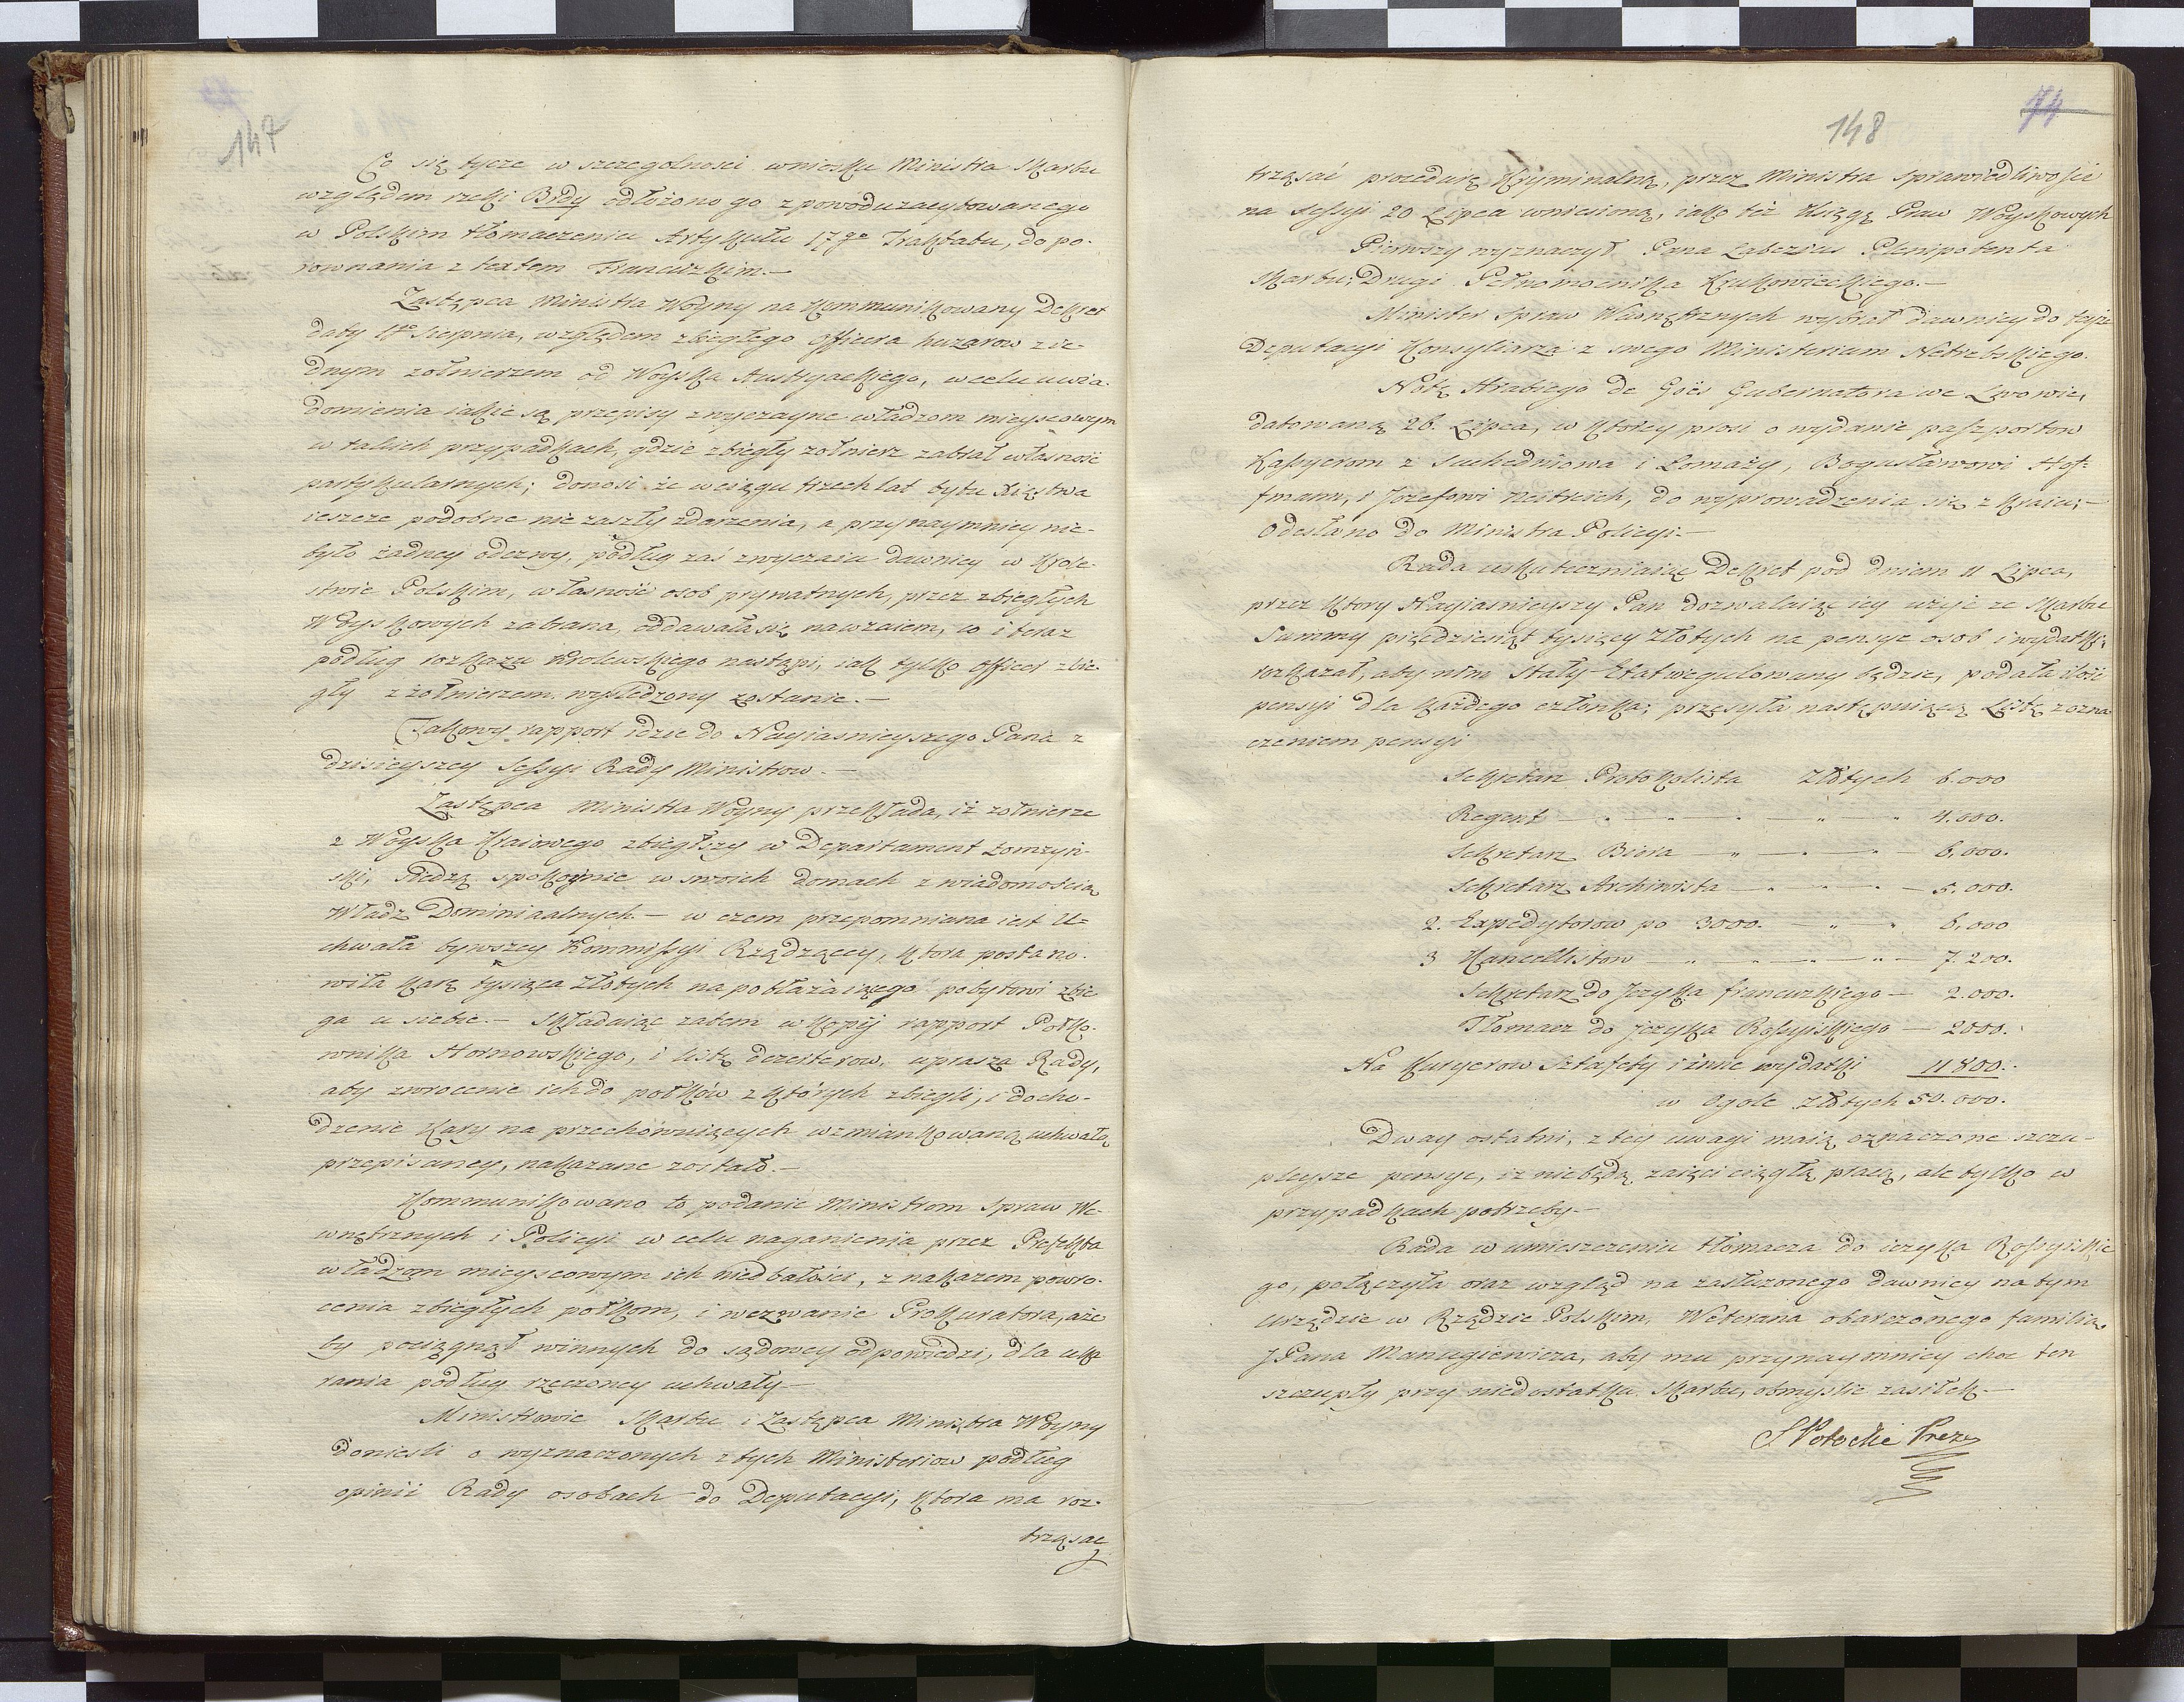 147
Co się tycze w szczegolnosci wniosku Ministra Skarbu
względem rzeki Brdy odłożono go z powodu zacytowanego
w Polskim tłomaczeniu Artykułu 17go Traktatu, do po-
rownania z textem Francuzkim.—
Zastępca Ministra Woyny na kommunikowany Dekret
daty 1o Sierpnia, względem zbiegłego officera huzarow z ie-
dnym zołnierzem od Woyska Austryackiego, w celu uwia-
domienia iakie są przepisy zwyczayne władzom mieyscowym
w takich przypadkach, gdzie zbiegły zołnierz zabrał własność
partykularnych; donosi że w ciągu trzech lat bytu Xięstwa
ieszcze podobne nie zaszły zdarzenia, a przynaymniey nie-
było żadney odezwy, podług zaś zwyczaiu dawniey w Krole-
stwie Polskim, własność osob prywatnych, przez zbiegłych
Woyskowych zabrana, oddawała się nawzaiem, co i teraz
podług rozkazu Krolewskiego nastąpi, iak tylko officer zbie-
gły z żołnierzem wyśledzony zostanie.—
Takowy rapport idzie do Nayiasnieyszego Pana z
dzisieyszey Sessyi Rady Ministrow.—
Zastępca Ministra Woyny przekłada, iż zołnierze
z Woyska Kraiowego zbiegłszy w Departament Łomzyń-
ski, siedzą spokoynie w swoich domach z wiadomością
Władz Dominialnych.— w czem przepomniana iest U-
chwała bywszey Kommissyi Rządzącey, ktora postano-
wiła karę tysiąca Złotych na pobłażaiącego pobytowi zbie
ga u siebie.— Składaiąc zatem w kopij rapport Pułko-
wnika Hornowskiego, i listę dezerterow, uprasza Rady,
aby zwrocenie ich do pułków z których zbiegli, i docho-
dzenie kary na przechowuiących wzmiankowaną uchwałą
przepisaney, nakazane zostało.—
Kommunikowano to podanie Ministrom Spraw We-
wnętrznych i Policyi w celu naganienia przez Prefekta
władzom mieyscowym ich niedbałości, z nakazem powro-
cenia zbiegłych pułkom, i wezwanie Prokuratora, aże
by pociągnął winnych do sądowey odpowiedzi, dla uka
rania podług rzeczoney uchwały—
Ministrowie Skarbu i Zastępca Ministra Woyny
doniesli o wyznaczonych z tych Ministeriow podług
opinii Rady osobach do Deputacyi, ktora ma roz-
trząsać
74
148
trząsać procedurę Kryminalną, przez Ministra Sprawiedliwości
na Sessyi 20 Lipca wniesioną, iako też Xsięgę Praw Woyskowych
Pierwszy wyznaczył Pana Łabęckiego Plenipotenta
Skarbu; Drugi Pełnomocnika Krukowieckiego.—
Minister Spraw Wewnętrznych wybrał dawniey do teyże
Deputacyi Konsyliarza z swego Ministerium Netrebskiego.
Notę Hrabiego de Goës Gubernatora we Lwowie,
datowaną 26. Lipca, w ktorey prosi o wydanie paszportow
Kassyerom z Suchedniowa i Łomaży, Bogusławowi Hof-
fmann, i Jozefowi, do wyprowadzenia się z kraiu;—
Odesłano do Ministra Policyi.—
Rada uskuteczniaiąc Dekret pod dniem 11 Lipca,
przez ktory Nayiasnieyszy Pan dozwalaiąc iey użyć ze Skarbu
Summy pięćdziesiąt tysięcy Złotych na pensye osob i wydatki,
rozkazał, aby nim stały Etat uregulowany będzie, podała ilość
pensyi dla każdego członka; przesyła następuiącą Listę z ozna
czeniem pensyi
Sekretarz Protokolista Złotych 6.000
Regent — " — " — " — 4.000.
Sekretarz Biora — " — " — " — 6,000.
Sekretarz Archiwista — " — " — 5.000.
2. Expedytorow po 3000. — " — " 6,000
3 Kancellistow — " — " — " — 7.200.
Sekretarz do Języka francuzkiego — 2.000.
Tłomacz do języka Rossyiskiego — 2000.
Na Kuryerow Sztafety i inne wydatki 11800.
w Ogole Złotych 50.000.
Dway ostatni, z tey uwagi maią oznaczone szczu-
pleysze pensye, iż niebędą zaięci ciągłą pracą, ale tylko w
przypadkach potrzeby.—
Rada w umieszczeniu tłomacza do ięzyka Rossyiskie
go, połączyła oraz wzgląd na zasłużonego dawniey na tym
urzędzie w Rządzie Polskim, Weterana obarczonego familią
JPana Manugiewicza, aby mu przynaymniey choc ten
szczupły przy niedostatku Skarbu, obmyslic zasiłek.—
S Potocki Prezes